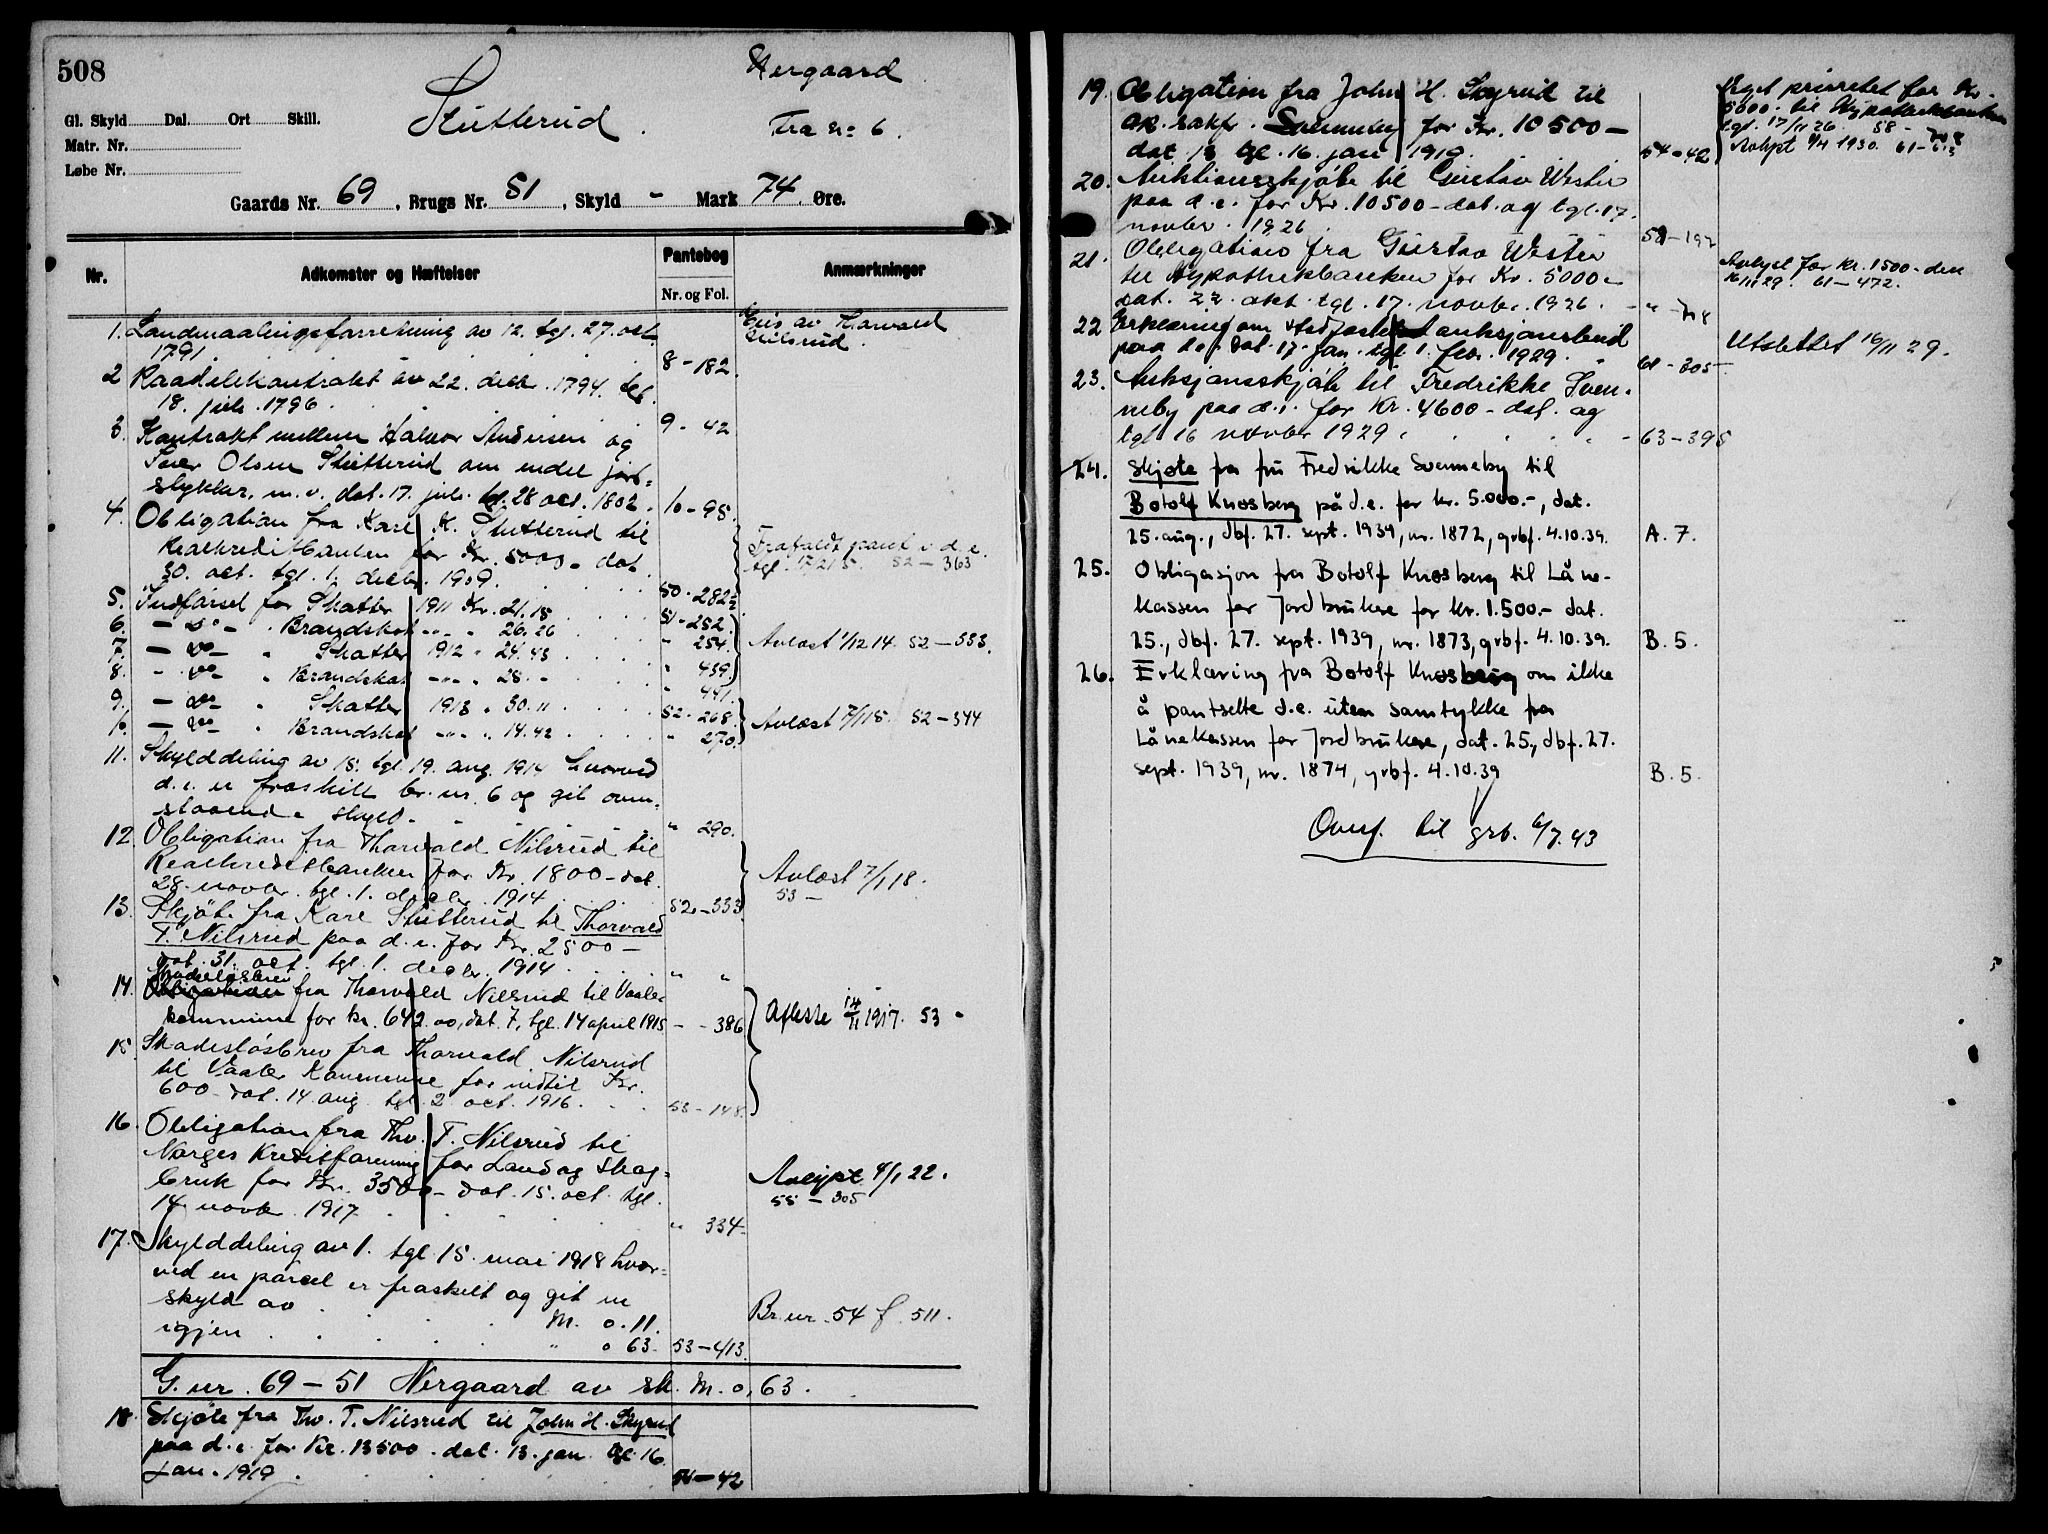 508
Nergaard
Stutterud.
Fra nr 6.
Gl. Skyld Dal. Ort Skill.
Matr. Nr.
Løbe Nr.
Gaards Nr. 69, Brugs Nr. 51, Skyld - Mark 74 Øre.
Nr. Adkomster og Hæftelser Pantebog Anmærkninger
Nr. og Fol.
1. Landmaalingsforretning av 12. tgl. 27. oct. Eies av Thorvald
1791. 8 - 182. Nilsrud.
2 Raadelekontrakt av 22. decbr. 1794. tgl.
18. juli. 1796. 9 - 42
3. Kontrakt mellem Halvor Andersen og
Iver Olsen Stutterud om endel jord-
stykker, m.v. dat. 17. juli. tgl. 28 oct. 1802. 10 - 95.
4. Obligation fra Kare K. Stutterud til
Realkreditbanken for Kr. 5000 - dat. Frafaldt pant i d.e.
30. oct. tgl. 1. decbr. 1909. 50 - 282½ 52 - 363
5. Indførsel for Skatter 1911 Kr. 21.18 51 - 252.
6. - do - " Brandskat -"- " 26.26 " 254. Avlæst 1/12 14. 52 - 333.
7. - do - " Skatter 1912 " 24.43 " 439.
8. - do - " Brandskat -"- " 28.- " 441.
9. - do - " Skatter 1913 " 30.11 52 - 268. Avlæst 7/1 15. 52 - 344
10. - do - " Brandskat -"- " 14.42 " 270.
11. Skylddeling av 15. tgl. 19. aug. 1914 hvorved
d.e. er fraskilt br. nr. 6 og git oven-
staaende skyld. " 290.
12. Obligation fra Thorvald Nilsrud til
Realkreditbanken for Kr. 1800 - dat. Avlæst 7/1 18.
28. novbr. tgl. 1. decbr. 1914 52 - 333 53 -
13. Skjøte fra Kare Stutterud til Thorvald
T. Nilsrud paa d.e. for Kr. 2500 -
dat. 31. oct. tgl. 1. decbr. 1914 " "
Skadesløsbrev
14. Obligation fra Thorvald Nilsrud til Vaaler
kommune for kr. 642.00, dat. 7, tgl. 14 april 1915 - - 386 Aflæste 14/11 1917. 53 -
15. Skadesløsbrev fra Thorvald Nilsrud
til Vaaler Kommune for indtil Kr.
600 - dat. 14 aug. tgl. 2 oct. 1916. 53 - 148.
16. Obligation fra Thv. T. Nilsrud til
Norges Kreditforening for Land og Skog- Avlyst 4/1 22.
bruk for Kr. 3500 - dat. 15. oct. tgl. 55 - 305
14 novbr. 1917. " 334
17. Skylddeling av 1. tgl. 15. mai 1918 hvor-
ved en parcel er fraskilt og git en
skyld av M. 0.11. Br. nr. 54 f. 511.
igjen " 0 63. 53 - 413.
G. nr. 69 - 51 Nergaard av sk. M. 0,63.
18 Skjøte fra Thv. T. Nilsrud til John H. Skyrud
paa d.e. for Kr. 13500 - dat. 13. jan. tgl. 16.
jan. 1919. 54 - 42
19. Obligation fra John H. Skyrud til Veget prioritet for Kr.
for Kr. 10500 - 5000 - til Hypothekbanken
dat. 13 tgl. 16. jan 1919. 54 - 42 tgl. 17/11 26. 58 -
Avlyst 1930. 61 -
20. Auktionsskjøte til Gustav Westir
paa d.e. for Kr. 10500 - dat. og tgl. 17.
novber. 1926 58 - 192
21. Obligation fra Gustav Westir Avlyst for kr. 1500 - den
til Hypothekbanken for Kr. 5000 - 16/11 29. 61 - 472.
dat. 22. okt. tgl. 17. novbr. 1926. - "
22 Erklæring om auksjonsbud Utslettet 16/11 29.
paa d.e. dat. 17. jan. tgl. 1. febr. 1929. 61 - 305
23. Auksjonsskjøte til Fredrikke Sven-
neby paa d.e. for Kr. 4600 - dat. og
tgl. 16 novber 1929. 63 - 395
24. Skjøte fra fru Fredrikke Svenneby til
Botolf Knosberg på d.e. for kr. 5.000.-, dat.
25. aug., dbf. 27. sept. 1939, nr. 1872, grbf. 4.10.39. A. 7.
25. Obligasjon fra Botolf Knosberg til Låne-
kassen for Jordbrukere for kr. 1.500.- dat.
25., dbf. 27. sept. 1939, nr. 1873, grbf. 4.10.39. B. 5.
26. Erklæring fra Botolf Knosberg om ikke
å pantsette d.e. uten samtykke fra
Lånekassen for Jordbrukere, dat. 25., dbf. 27.
sept. 1939, nr. 1874, grbf. 4.10.39 B. 5.
Overf. til grb. 6/7. 43